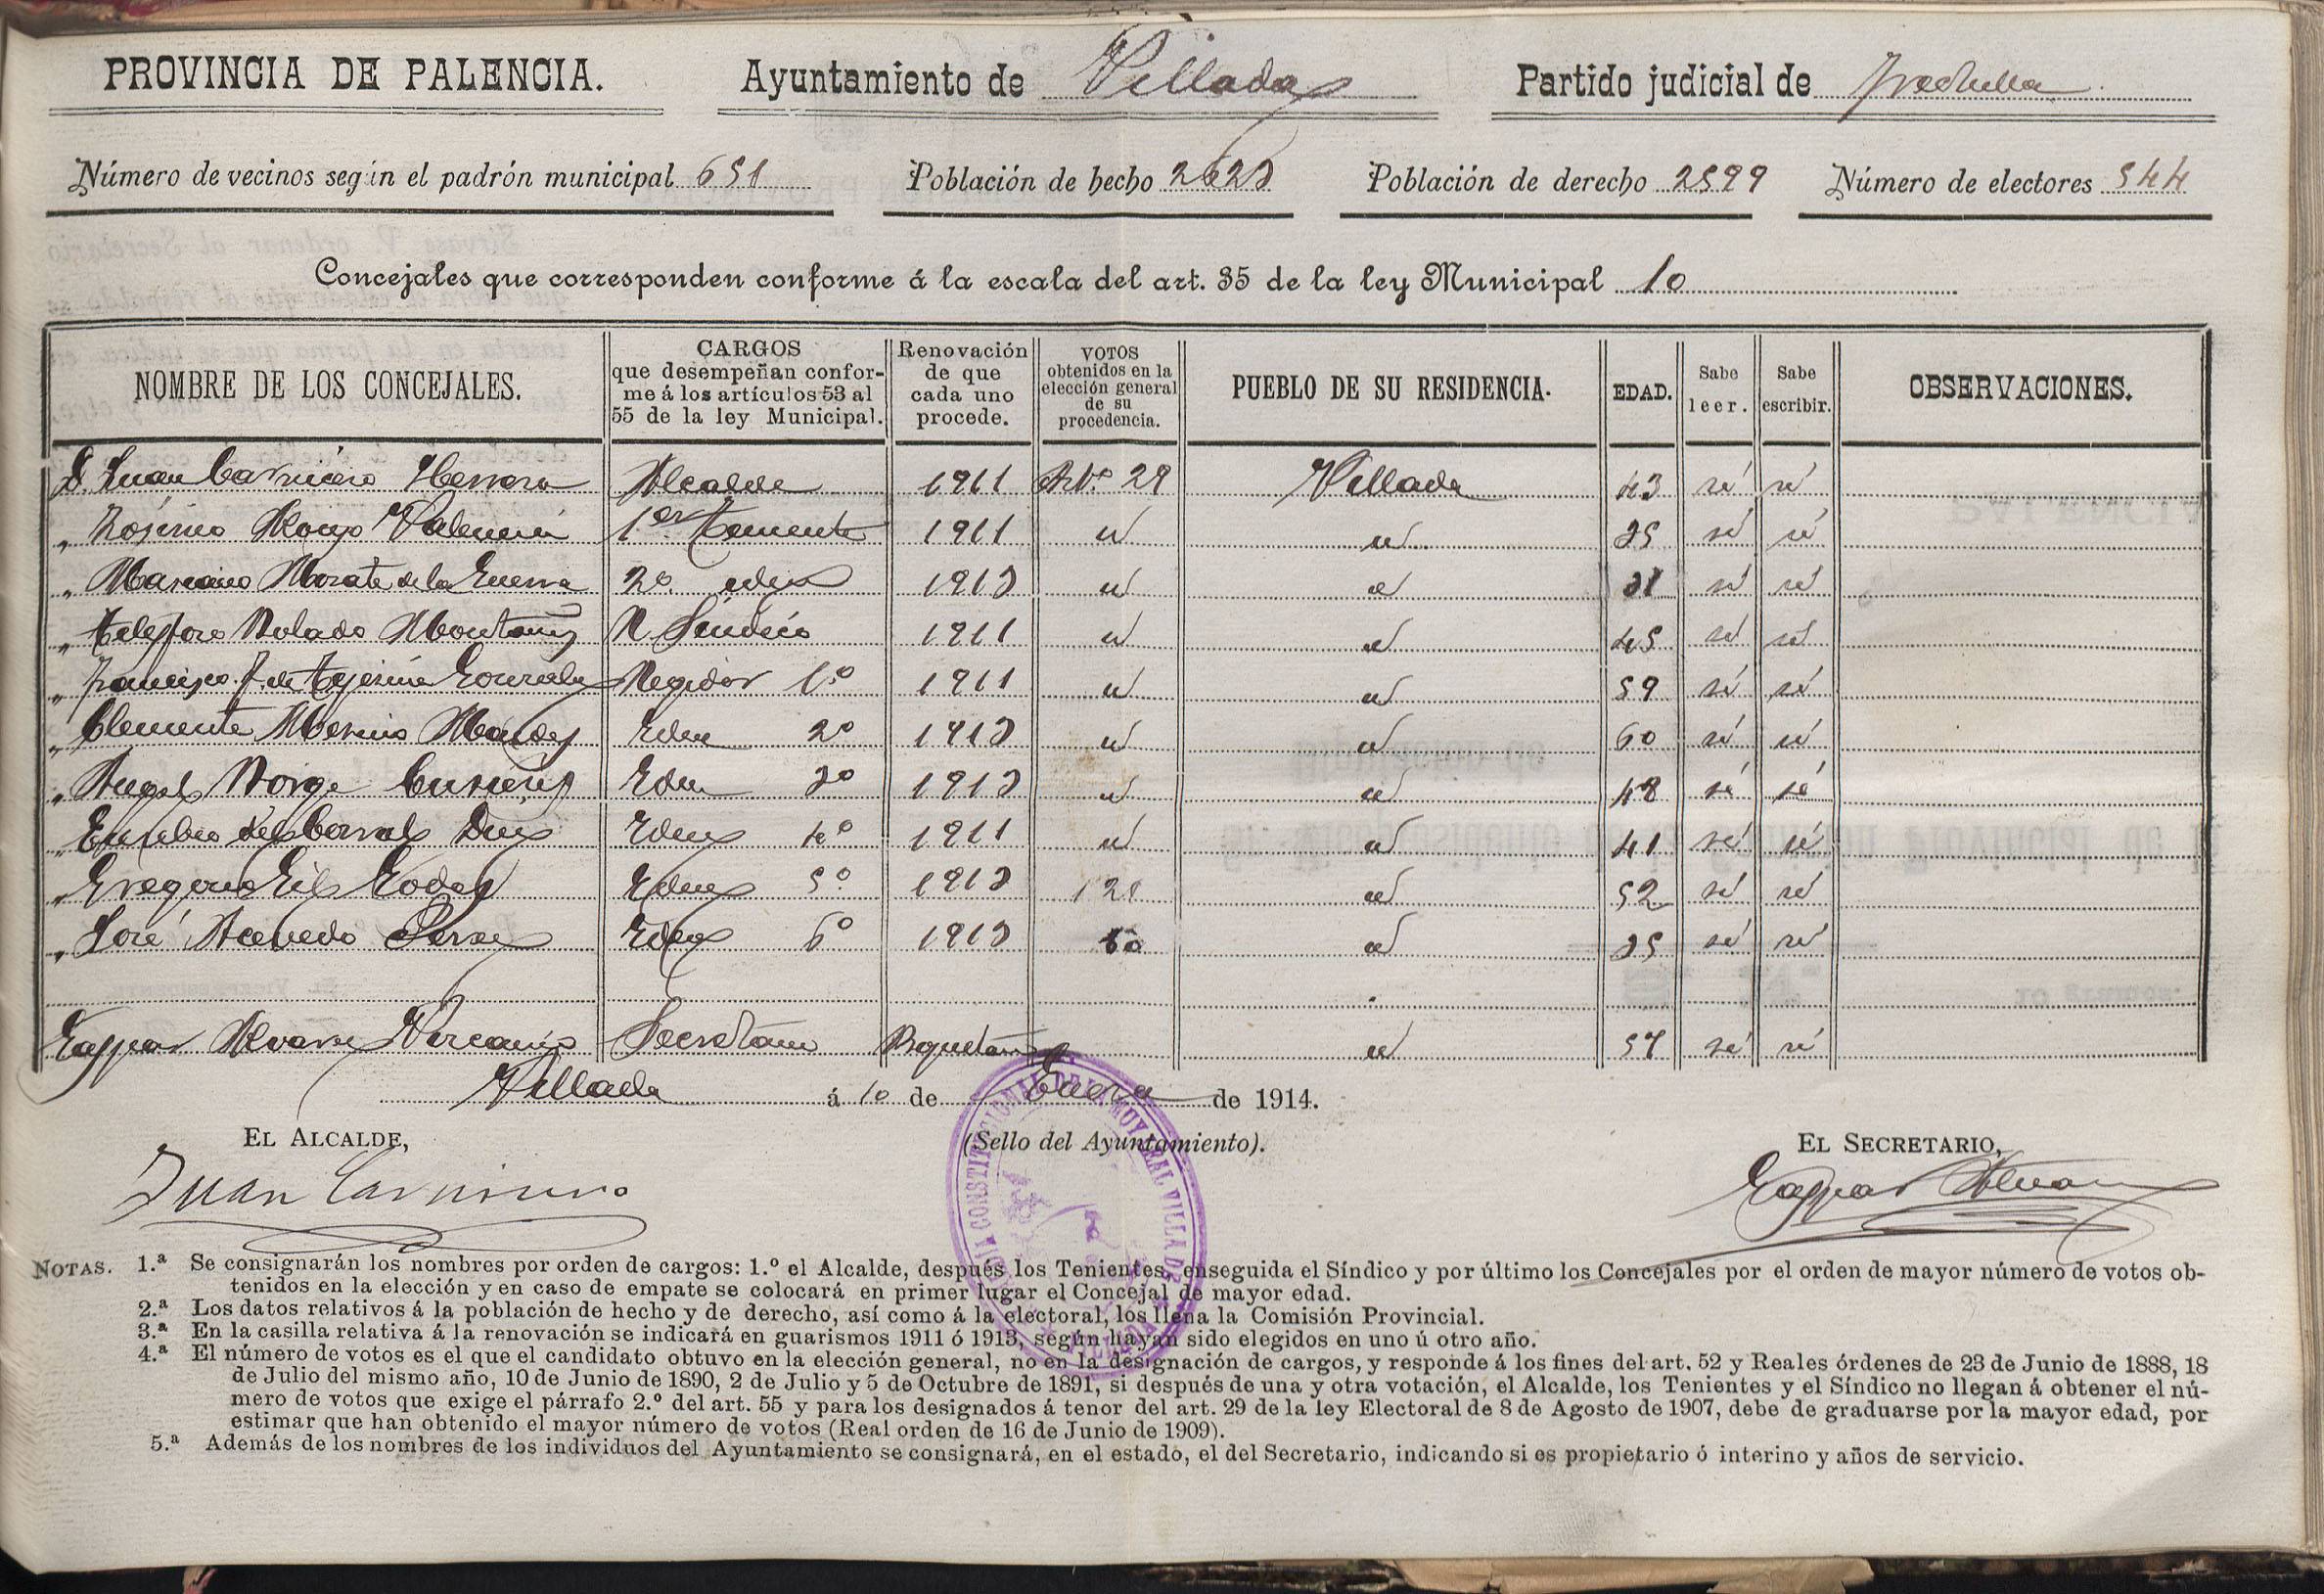 PROVINCIA DE PALENCIA. Ayuntamiento de Villada Partido judicial de Frechilla
Número de vecinos según el padrón municipal 651 Población de hecho 2623 Población de derecho 2599 Número de electores 544
Concejales que corresponden conforme á la escala del art. 35 de la ley Municipal 10
NOMBRE DE LOS CONCEJALES. CARGOS que desempeñan conforme á los artículos 53 al 55 de la ley Municipal. Renovación de que cada uno procede. VOTOS obtenidos en la elección general de su procedencia. PUEBLO DE SU RESIDENCIA. EDAD. Sabe leer. Sabe escribir. OBSERVACIONES.
D. Juan Carnicero Herrera Alcalde 1911 Artº 29 Villada 43 sí sí
" Alonso Valencia 1er Teniente 1911 " " 35 sí sí
" Mariano Morate de la Guerra 2º idem 1913 " " 31 sí sí
" Telesforo Polado R. Síndico 1911 " " 45 sí sí
" Francisco González Regidor 1º 1911 " " 59 sí sí
" Clemente Merino Idem 2º 1913 " " 60 sí sí
" Angel Borge Idem 3º 1913 " " 48 sí sí
" Eusebio del Corral Diez Idem 4º 1911 " " 41 sí sí
" Gregorio Gil Godos Idem 5º 1913 121 " 52 sí sí
" José Acevedo Idem 6º 1913 60 " 35 sí sí
Gaspar Alvarez Secretario " 57 sí sí
Villada á 10 de Enero de 1914.
EL ALCALDE, (Sello del Ayuntamiento). EL SECRETARIO,
Juan Carnicero Gaspar Alvarez
NOTAS. 1.ª Se consignarán los nombres por orden de cargos: 1.º el Alcalde, después los Tenientes, enseguida el Síndico y por último los Concejales por el orden de mayor número de votos ob-
tenidos en la elección y en caso de empate se colocará en primer lugar el Concejal de mayor edad.
2.ª Los datos relativos á la población de hecho y de derecho, así como á la electoral, los llena la Comisión Provincial.
3.ª En la casilla relativa á la renovación se indicará en guarismos 1911 ó 1913, según hayan sido elegidos en uno ú otro año.
4.ª El número de votos es el que el candidato obtuvo en la elección general, no en la designación de cargos, y responde á los fines del art. 52 y Reales órdenes de 23 de Junio de 1888, 18
de Julio del mismo año, 10 de Junio de 1890, 2 de Julio y 5 de Octubre de 1891, si después de una y otra votación, el Alcalde, los Tenientes y el Síndico no llegan á obtener el nú-
mero de votos que exige el párrafo 2.º del art. 55 y para los designados á tenor del art. 29 de la ley Electoral de 8 de Agosto de 1907, debe de graduarse por la mayor edad, por
estimar que han obtenido el mayor número de votos (Real orden de 16 de Junio de 1909).
5.ª Además de los nombres de los individuos del Ayuntamiento se consignará, en el estado, el del Secretario, indicando si es propietario ó interino y años de servicio.